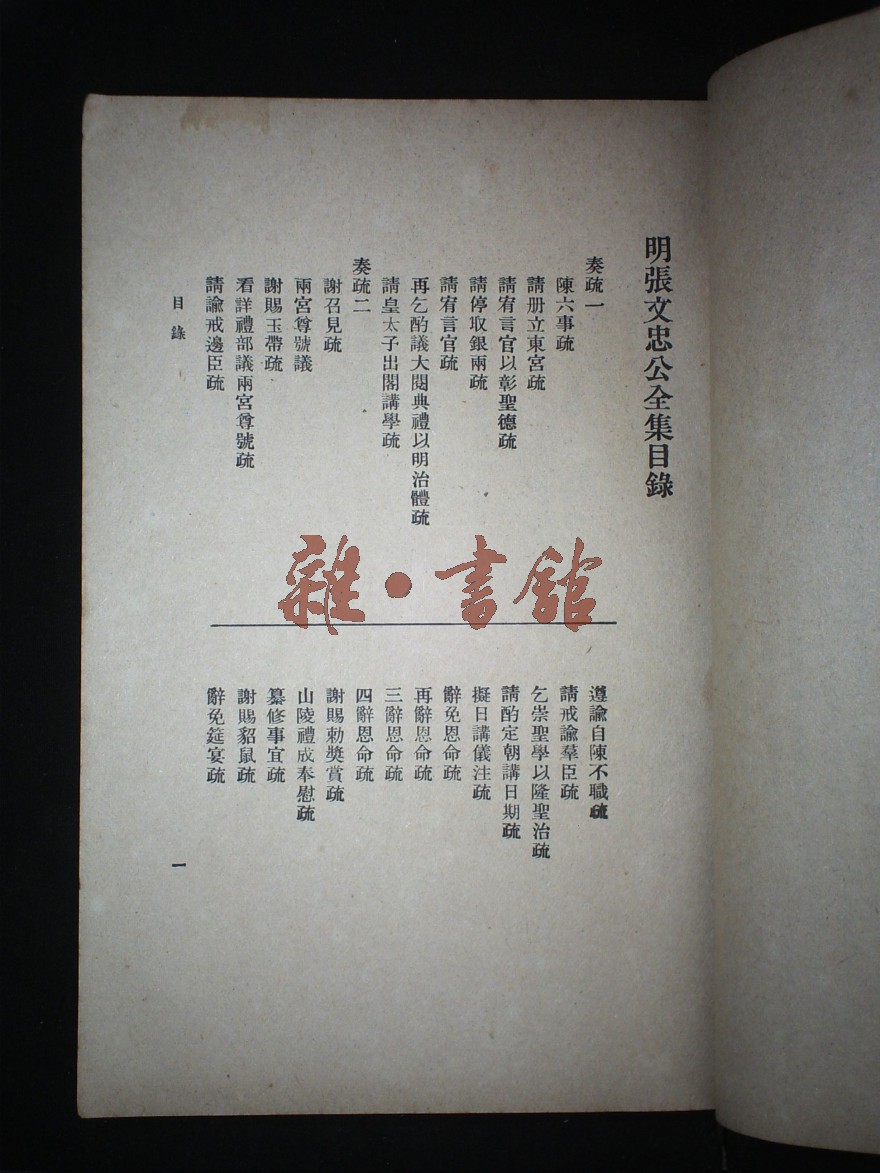 明張文忠公全集目錄
奏疏一
陳六事疏
請册立東宮疏
請宥言官以彰聖德疏
請停取銀兩疏
請宥言官疏
再乞酌議大閱典禮以明治體疏
請皇太子出閣講學疏
奏疏二
謝召見疏
兩宮尊號議
謝賜玉帶疏
看詳禮部議兩宮尊號疏
請諭戒邊臣疏
遵諭自陳不職疏
請戒諭羣臣疏
乞崇聖學以隆聖治疏
請酌定朝講日期疏
擬日講儀注疏
辭免恩命疏
再辭恩命疏
三辭恩命疏
四辭恩命疏
謝賜勅獎賞疏
山陵禮成奉慰疏
纂修事宜疏
謝賜貂鼠疏
辭免筵宴疏
目錄
一
雜·書館